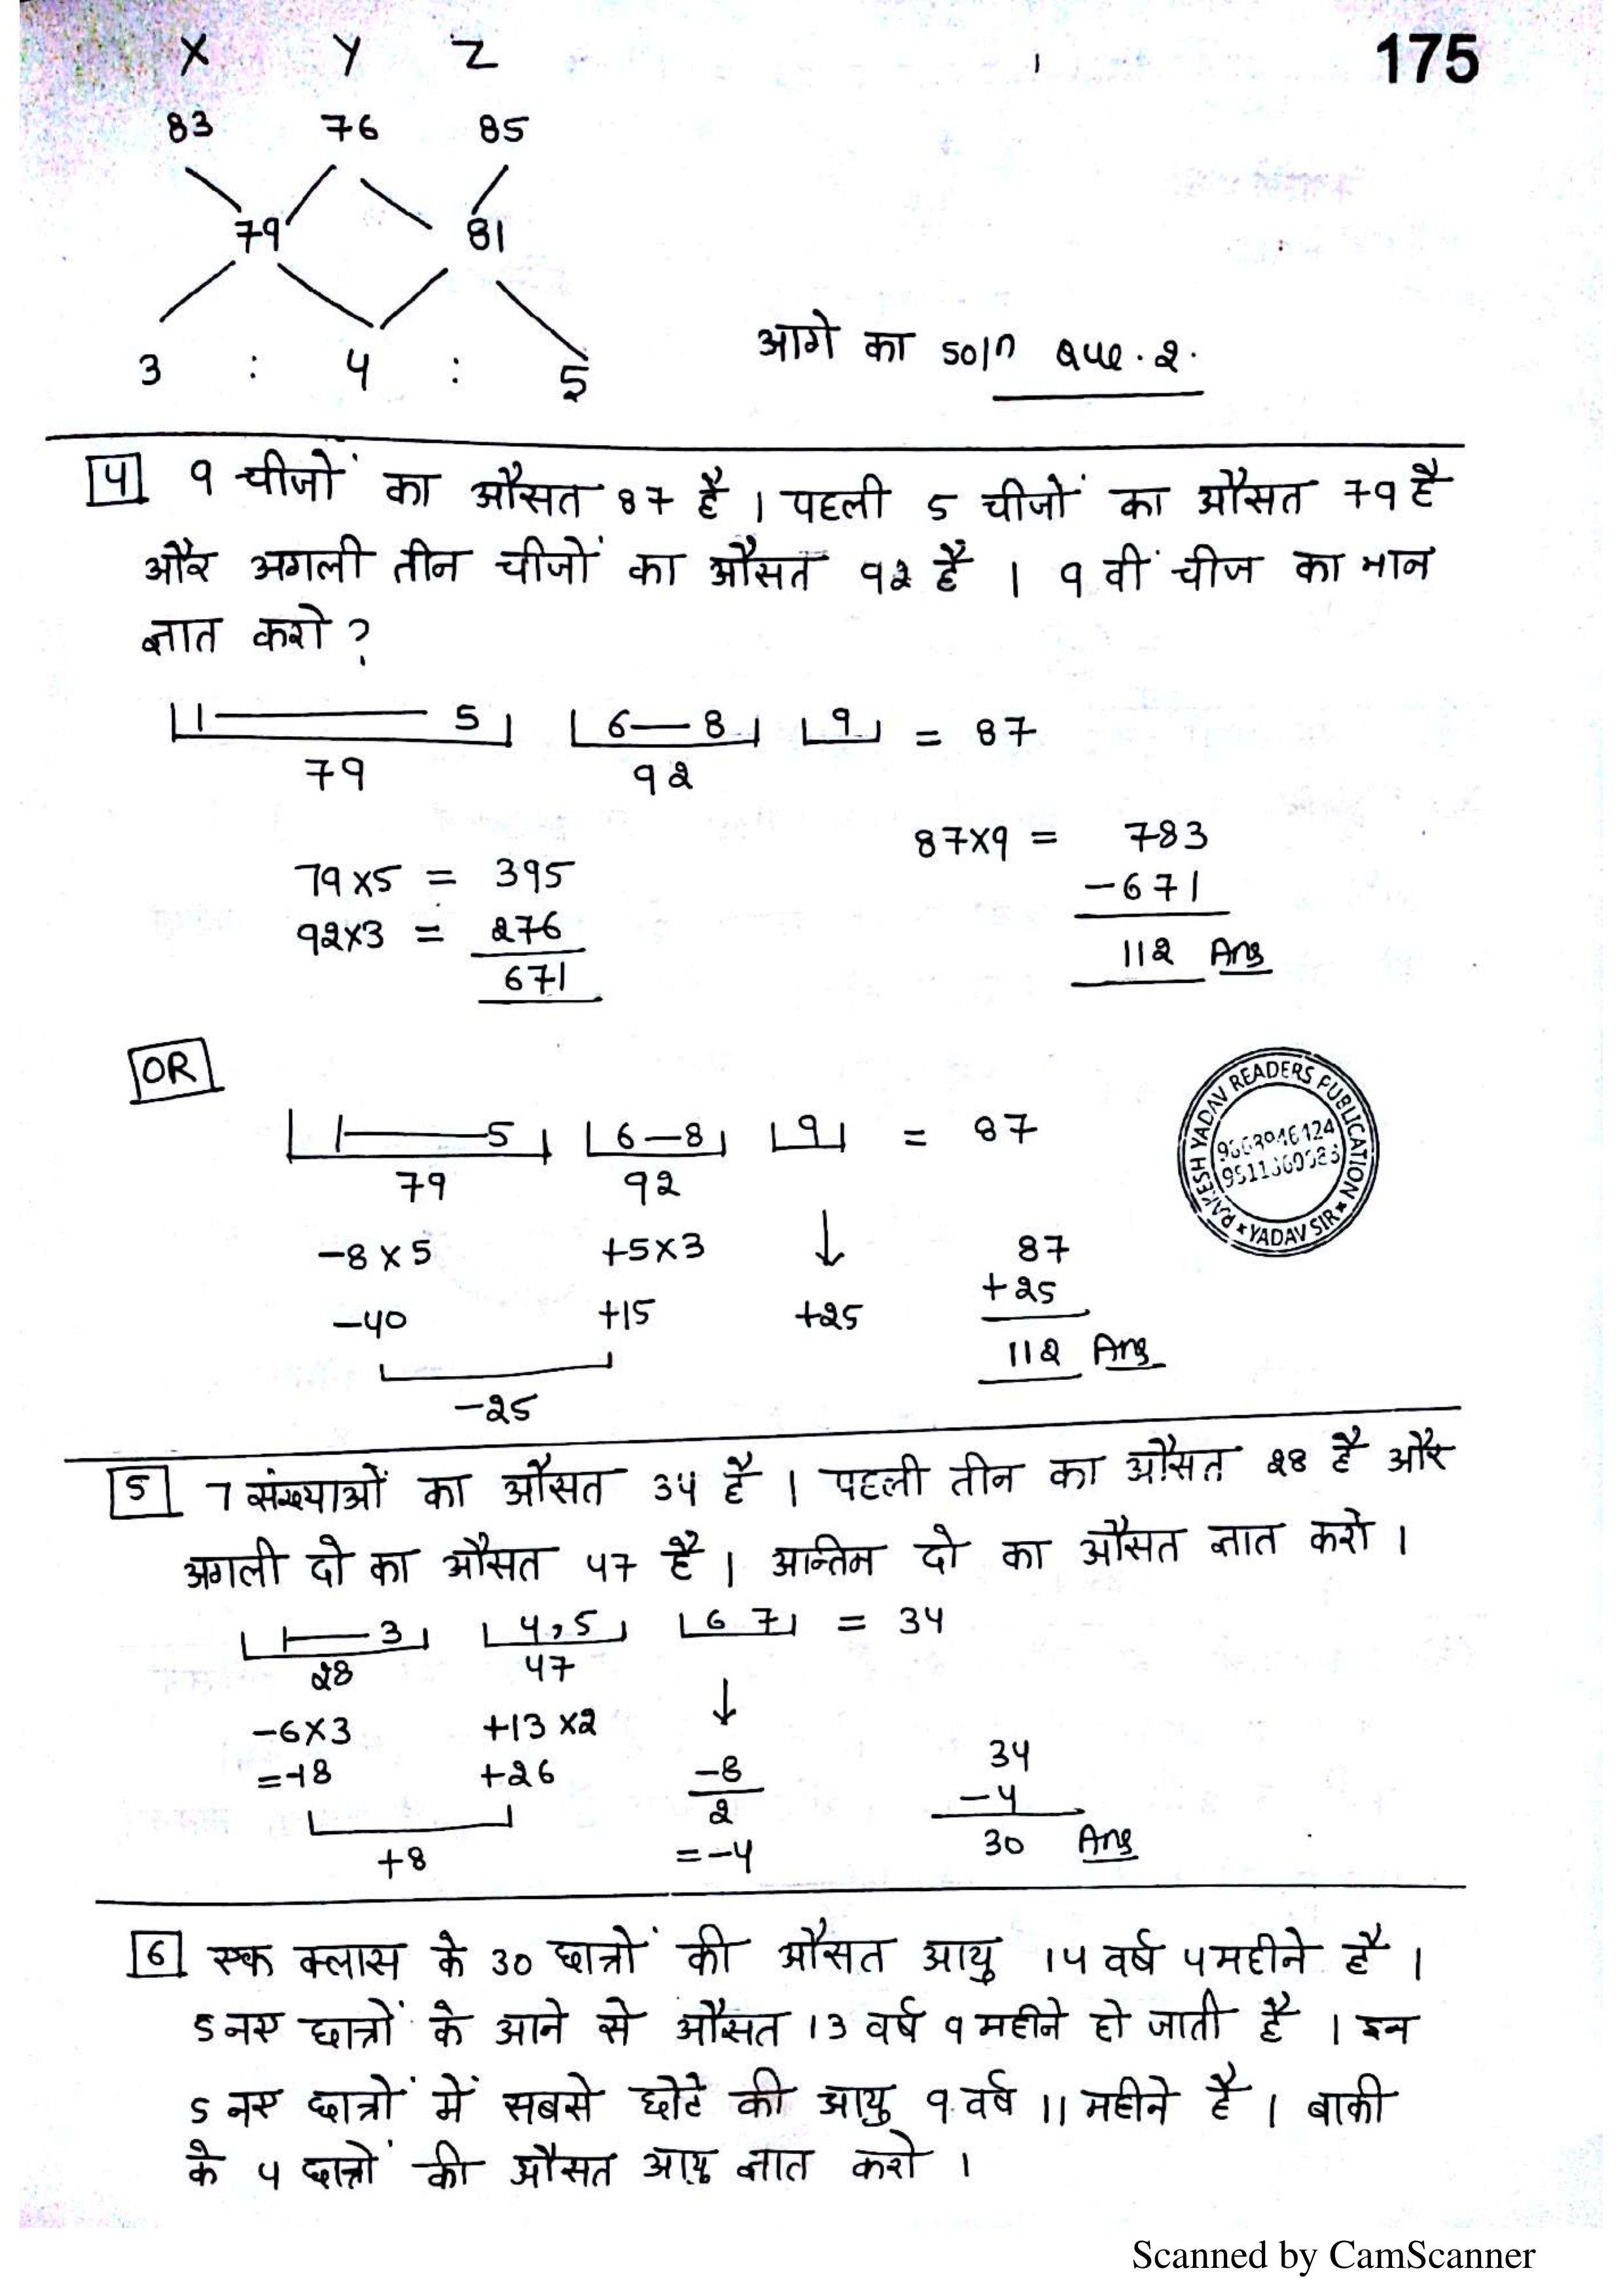 X Y Z 175
83 76 85
79 81
3 : 4 : 5
आगे का soln Que. 2.
4 9 चीजों का औसत 87 है । पहली 5 चीजों का औसत 79 है
और अगली तीन चीजों का औसत 92 है । 9 वीं चीज का मान
ज्ञात करो ?
1 — 5 6 — 8 9 = 87
79 92
79×5 = 395
92×3 = 276
671
87×9 = 783
-671
112 Ans
OR
1 — 5 6 — 8 9 = 87
79 92
-8×5 +5×3 ↓ 87
-40 +15 +25 +25
112 Ans
-25
RAKESH YADAV READERS PUBLICATION
* YADAV SIR *
5 7 संख्याओं का औसत 34 है । पहली तीन का औसत 28 है और
अगली दो का औसत 47 है । अन्तिम दो का औसत ज्ञात करो ।
1 — 3 4,5 6 7 = 34
28 47
-6×3 +13×2 ↓
=-18 +26 -8/2 34
-4
+8 =-4 30 Ans
6 एक क्लास के 30 छात्रों की औसत आयु 14 वर्ष 4 महीने है ।
5 नए छात्रों के आने से औसत 13 वर्ष 9 महीने हो जाती है । इन
5 नए छात्रों में सबसे छोटे की आयु 9 वर्ष 11 महीने है । बाकी
के 4 छात्रों की औसत आयु ज्ञात करो ।
Scanned by CamScanner